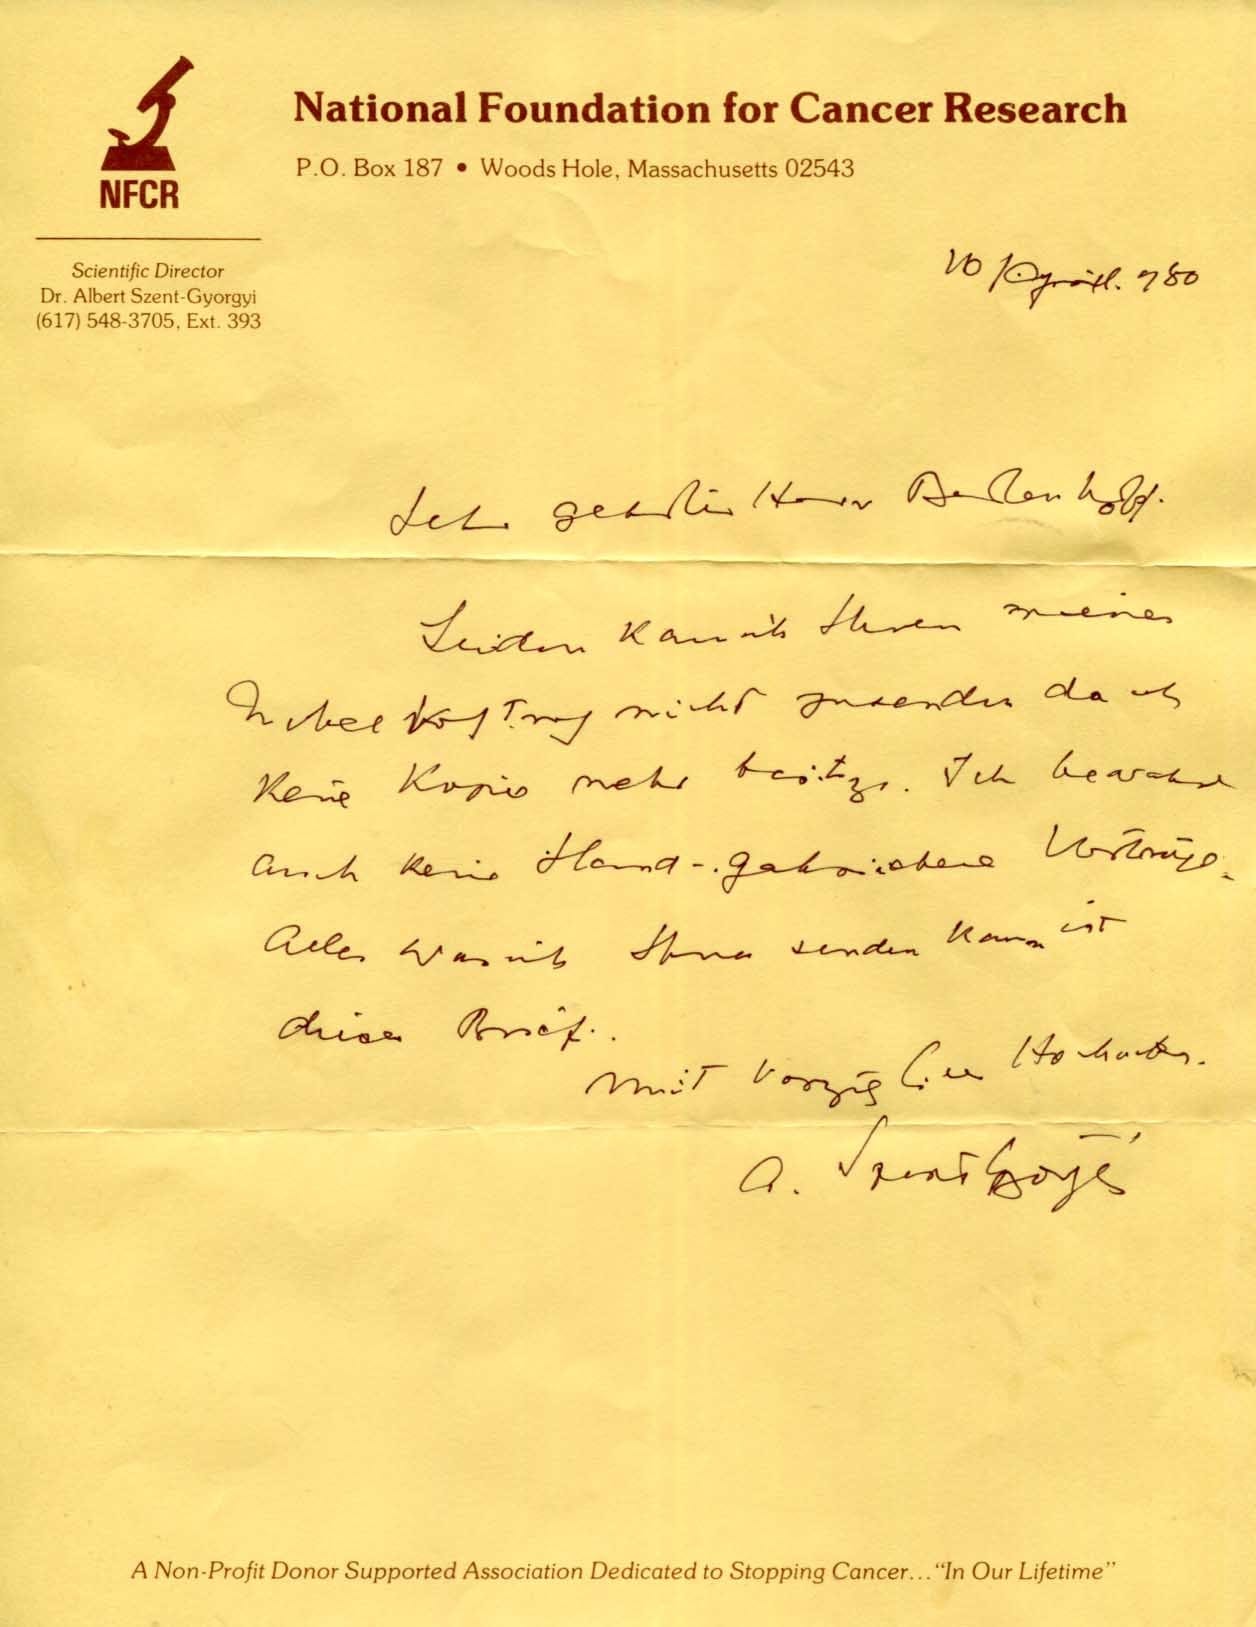 National Foundation for Cancer Research
P.O. Box 187 • Woods Hole, Massachusetts 02543
NFCR
Scientific Director
Dr. Albert Szent-Gyorgyi
(617) 548-3705, Ext. 393
10 April. 980
Sehr geehrter Herr
Leider kann ich Ihnen meinen
Nobel Vortrag nicht zusenden da ich
keine Kopie mehr besitze. Ich bewahre
auch keine Hand-geschriebene Vorträge.
Alles was ich Ihnen senden kann ist
dieser Brief.
Mit vorzüglicher Hochacht.
A. Szent-Györgyi
A Non-Profit Donor Supported Association Dedicated to Stopping Cancer... "In Our Lifetime"